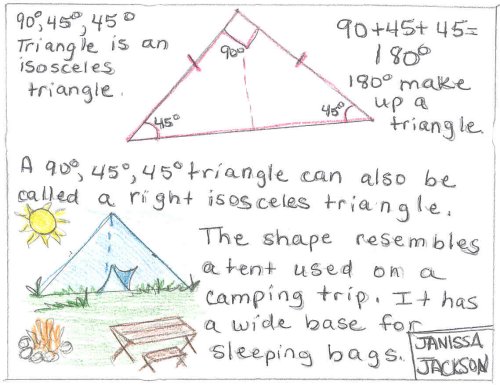 90°, 45°, 45°
Triangle is an
isosceles
triangle.
90°
45°
45°
90+45+45=
180°
180° make
up a
triangle
A 90°, 45°, 45° triangle can also be
called a right isosceles triangle.
The shape resembles
a tent used on a
camping trip. It has
a wide base for
sleeping bags.
JANISSA
JACKSON